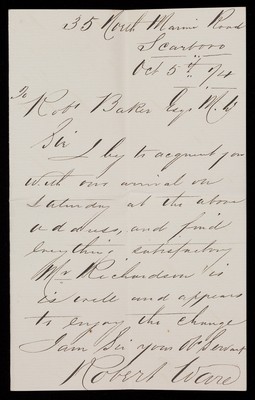 35 North Marine Road
Scarboro
Oct 5th /74
To
Robt Baker Esqr M.D
Sir
I beg to acquaint you
with our arrival on
Saturday at the above
address, and find
everything satisfactory
Mr Richardson is
is well and appears
to enjoy the change
I am Sir your Obt Servant
Robert Ware